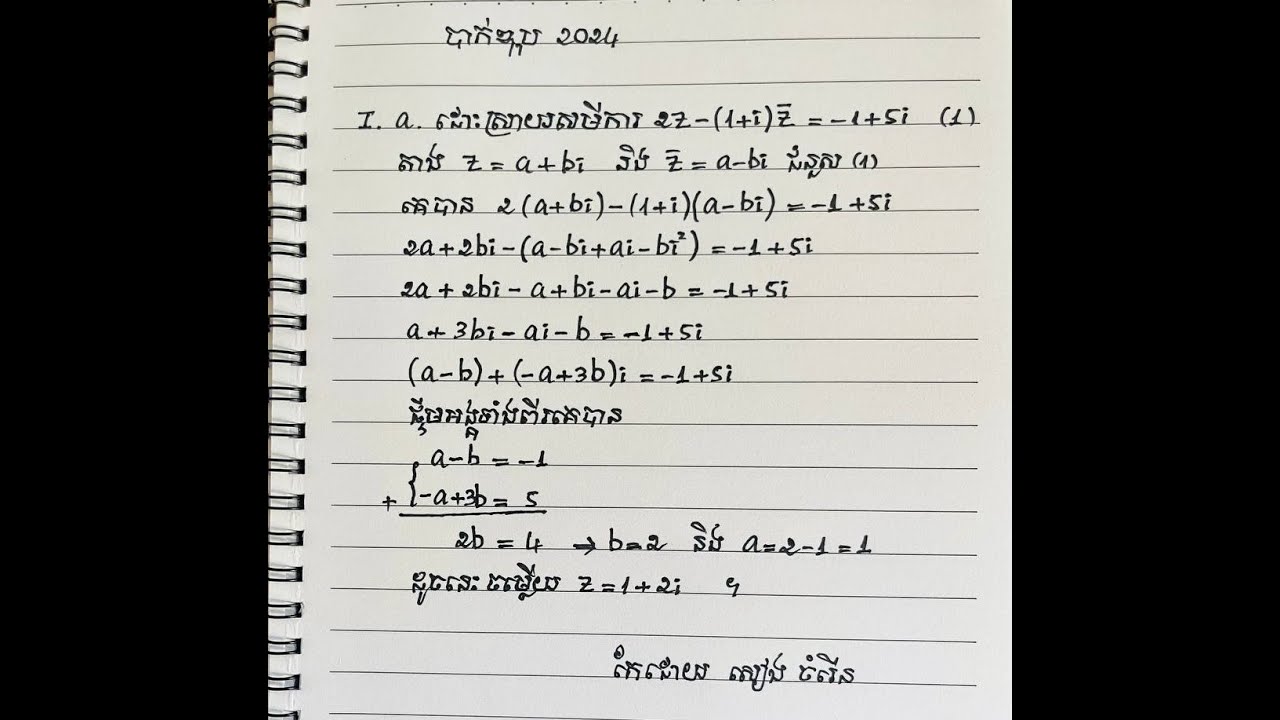 បាក់ឌុប 2024
I. a. ដោះស្រាយសមីការ 2z-(1+i)z̄ = -1+5i (1)
តាង z = a+bi និង z̄ = a-bi ជំនួស (1)
គេបាន 2(a+bi)-(1+i)(a-bi) = -1+5i
2a+2bi-(a-bi+ai-bi²) = -1+5i
2a+2bi-a+bi-ai-b = -1+5i
a+3bi-ai-b = -1+5i
(a-b)+(-a+3b)i = -1+5i
ផ្ទឹមអង្គទាំងពីរគេបាន
a-b = -1
+ { -a+3b = 5
2b = 4 → b=2 និង a=2-1=1
ដូចនេះ ចម្លើយ z=1+2i ។
កែដោយ សៀង ចំរើន